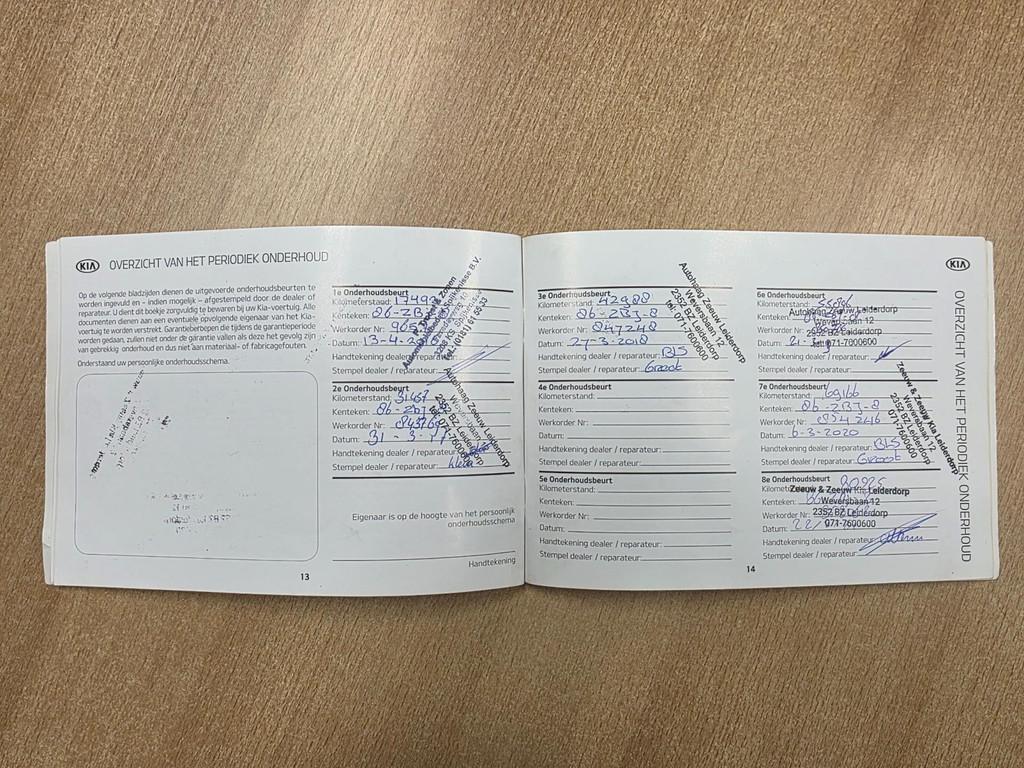 KIA OVERZICHT VAN HET PERIODIEK ONDERHOUD
Op de volgende bladzijden dienen de uitgevoerde onderhoudsbeurten te
worden ingevuld en – indien mogelijk – afgestempeld door de dealer of
reparateur. U dient dit boekje zorgvuldig te bewaren bij uw Kia-voertuig. Alle
documenten dienen aan een eventuele opvolgende eigenaar van het Kia-
voertuig te worden verstrekt. Garantieberoepen die tijdens de garantieperiode
worden gedaan, zullen niet onder de garantie vallen als deze het gevolg zijn
van gebrekkig onderhoud en dus niet aan materiaal- of fabricagefouten.
Onderstaand uw persoonlijke onderhoudsschema.
13
1e Onderhoudsbeurt
Kilometerstand:
Kenteken: 86-ZBJ-8
Werkorder Nr:
Datum: 13-4-
Handtekening dealer / reparateur:
Stempel dealer / reparateur:
& Zonen
B.V.
2e Onderhoudsbeurt
Kilometerstand: 31467
Kenteken: 86-ZBJ-8
Werkorder Nr:
Datum: 31-3-17
Handtekening dealer / reparateur:
Stempel dealer / reparateur:
Autohaag Zeeuw Leiderdorp
Weversbaan 12
2352 BZ Leiderdorp
Eigenaar is op de hoogte van het persoonlijk
onderhoudsschema
Handtekening
3e Onderhoudsbeurt
Kilometerstand: 42988
Kenteken: 86-ZBJ-8
Werkorder Nr: 847248
Datum: 27-3-2018
Handtekening dealer / reparateur: BLS
Stempel dealer / reparateur: Groot
Autohaag Zeeuw Leiderdorp
Weversbaan 12
2352 BZ Leiderdorp
tel: 071-7600600
4e Onderhoudsbeurt
Kilometerstand:
Kenteken:
Werkorder Nr:
Datum:
Handtekening dealer / reparateur:
Stempel dealer / reparateur:
5e Onderhoudsbeurt
Kilometerstand:
Kenteken:
Werkorder Nr:
Datum:
Handtekening dealer / reparateur:
Stempel dealer / reparateur:
14
6e Onderhoudsbeurt
Kilometerstand: 55896
Autohaag Zeeuw Leiderdorp
Kenteken:
Weversbaan 12
Werkorder
2352 BZ Leiderdorp
Datum:
tel: 071-7600600
Handtekening dealer / reparateur:
Stempel dealer / reparateur:
7e Onderhoudsbeurt
Kilometerstand: 69166
Kenteken: 86-ZBJ-8
Werkorder Nr: 854246
Datum: 6-3-2020
Handtekening dealer / reparateur: BLS
Stempel dealer / reparateur: Groot
Zeeuw & Zeeuw Kia Leiderdorp
Weversbaan 12
2352 BZ Leiderdorp
071-7600600
8e Onderhoudsbeurt
Zeeuw & Zeeuw Kia Leiderdorp
Kenteken:
Weversbaan 12
Werkorder Nr:
2352 BZ Leiderdorp
Datum: 22/
071-7600600
Handtekening dealer / reparateur:
Stempel dealer / reparateur:
KIA
OVERZICHT VAN HET PERIODIEK ONDERHOUD